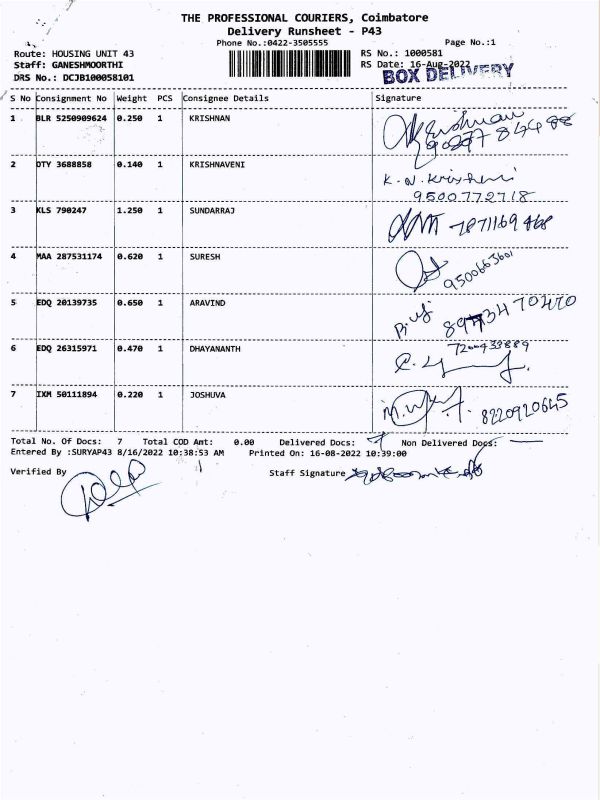 THE PROFESSIONAL COURIERS, Coimbatore
Delivery Runsheet - P43
Phone No.:0422-3505555 Page No.:1
Route: HOUSING UNIT 43 RS No.: 1000581
Staff: GANESHMOORTHI RS Date: 16-Aug-2022
DRS No.: DCJB100058101 BOX DELIVERY
S No Consignment No Weight PCS Consignee Details Signature
1 BLR 5250909624 0.250 1 KRISHNAN
2 DTY 3688858 0.140 1 KRISHNAVENI
9500772718
3 KLS 790247 1.250 1 SUNDARRAJ
4 MAA 287531174 0.620 1 SURESH
9500663601
5 EDQ 20139735 0.650 1 ARAVIND
6 EDQ 26315971 0.470 1 DHAYANANTH 7200433889
7 IXM 50111894 0.220 1 JOSHUVA 8220920645
Total No. Of Docs: 7 Total COD Amt: 0.00 Delivered Docs: 7 Non Delivered Docs:
Entered By :SURYAP43 8/16/2022 10:38:53 AM Printed On: 16-08-2022 10:39:00
Verified By Staff Signature